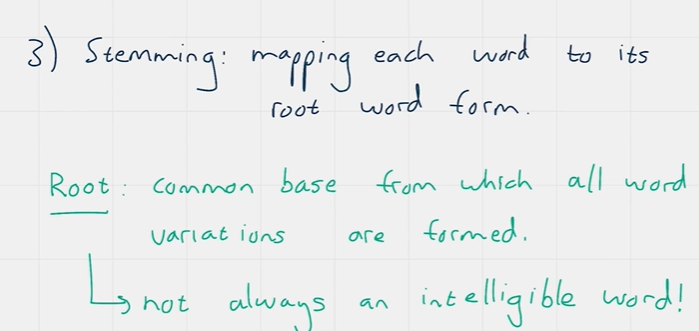 3) Stemming: mapping each word to its
root word form.
Root: common base from which all word
variations are formed.
↳ not always an intelligible word!